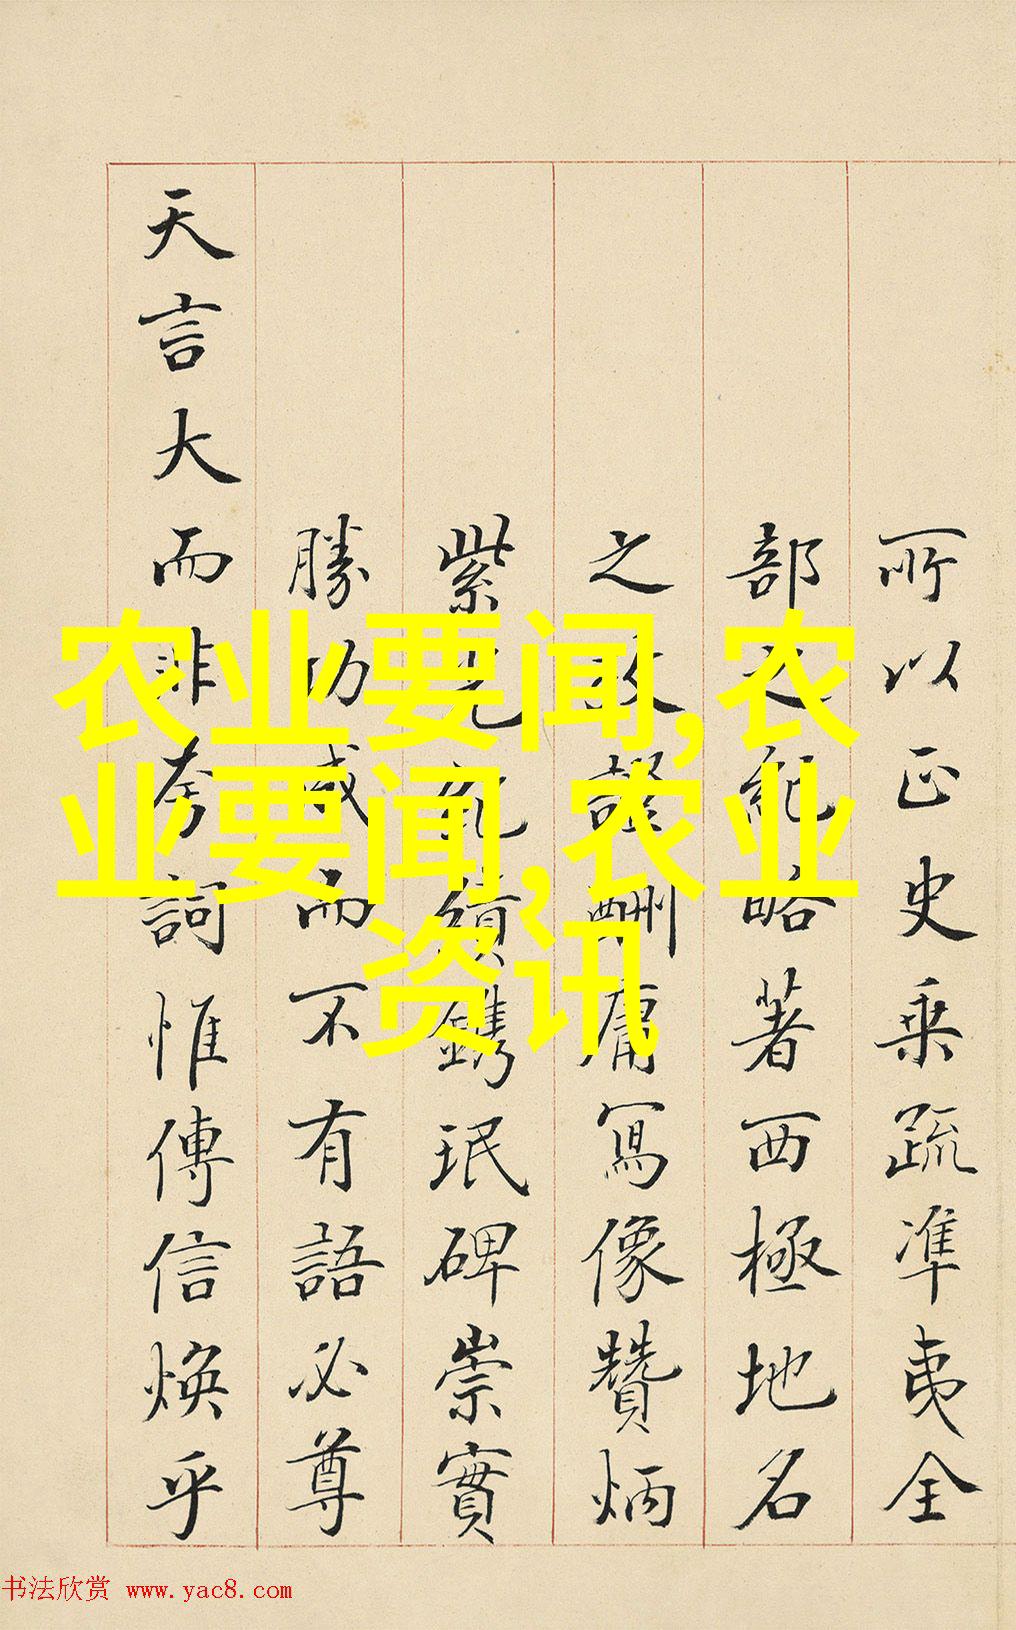 所以正史乘疏凖夷全
部之紀略著西極地名
之酬庸寫像贊炳
紫光績鐫珉碑崇實
勝功成而不有語必尊
天言大而非夸詞惟傳信煥乎
农业要闻,农
业要闻,农业
资讯
书法欣赏 www.yac8.com